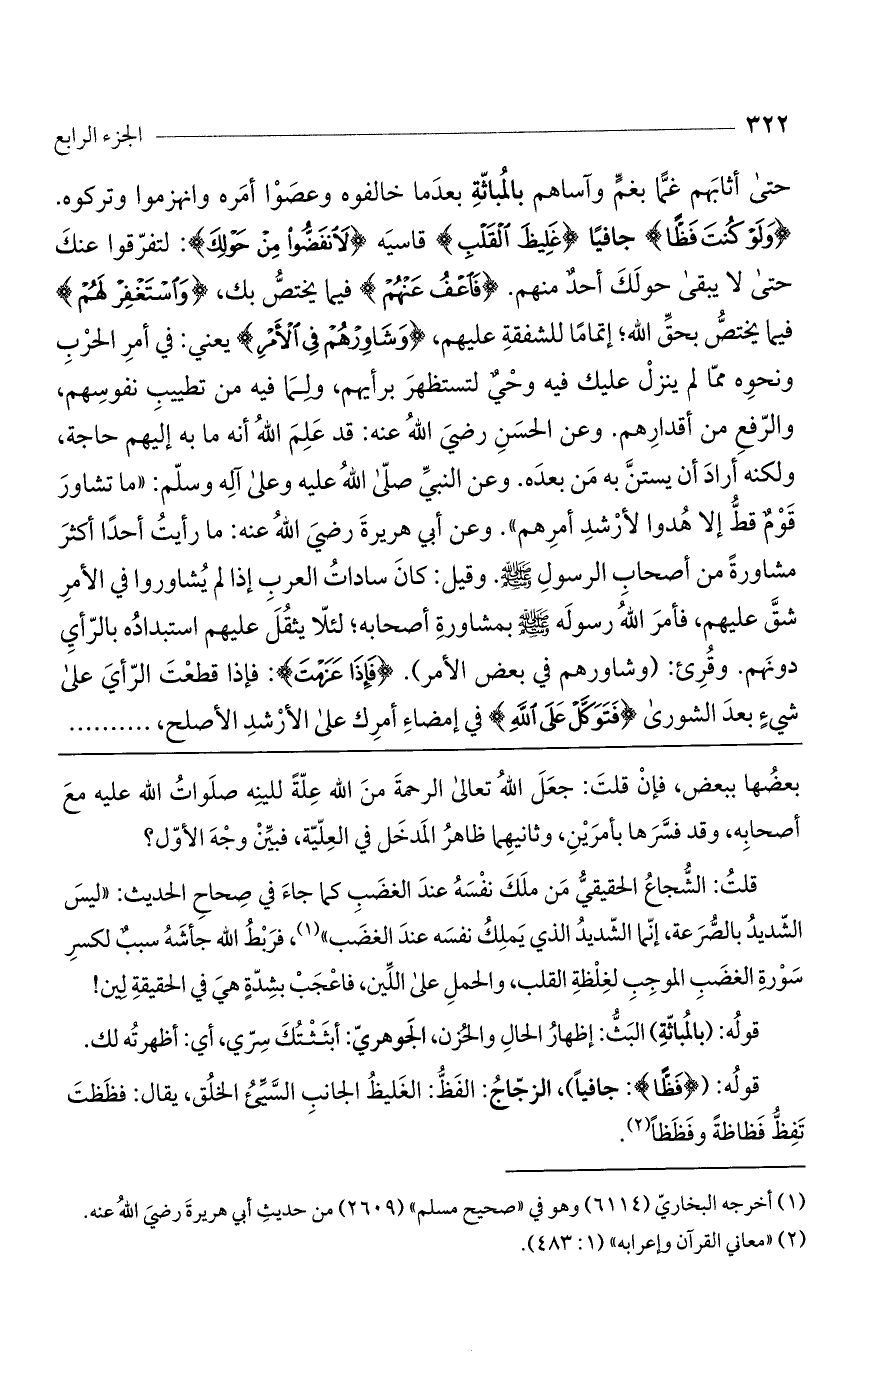 ٣٢٢ الجزء الرابع
حتىٰ أثابَهم غمًّا بغمٍّ وآساهم بالمُباثّةِ بعدَما خالفوه وعصَوْا أمَره وانهزموا وتركوه.
﴿وَلَوْ كُنتَ فَظًّا﴾ جافيًا ﴿غَلِيظَ ٱلْقَلْبِ﴾ قاسيَه ﴿لَٱنفَضُّوا۟ مِنْ حَوْلِكَ﴾: لتفرّقوا عنكَ
حتىٰ لا يبقىٰ حولَكَ أحدٌ منهم. ﴿فَٱعْفُ عَنْهُمْ﴾ فيما يختصُّ بك، ﴿وَٱسْتَغْفِرْ لَهُمْ﴾
فيما يختصُّ بحقِّ الله؛ إتمامًا للشفقةِ عليهم، ﴿وَشَاوِرْهُمْ فِى ٱلْأَمْرِ﴾ يعني: في أمرِ الحرْبِ
ونحوِه ممّا لم ينزلْ عليك فيه وحْيٌ لتستظهرَ برأيهم، ولِـمَا فيه من تطييبِ نفوسِهم،
والرّفعِ من أقدارِهم. وعن الحسَنِ رضيَ اللهُ عنه: قد عَلِمَ اللهُ أنه ما به إليهم حاجة،
ولكنه أرادَ أن يستنَّ به مَن بعدَه. وعن النبيِّ صلّىٰ اللهُ عليه وعلىٰ آلِه وسلّم: «ما تشاورَ
قَوْمٌ قطُّ إلا هُدوا لأرْشدِ أمرِهم». وعن أبي هريرةَ رضيَ اللهُ عنه: ما رأيتُ أحدًا أكثرَ
مشاورةً من أصحابِ الرسولِ ﷺ. وقيل: كانَ ساداتُ العربِ إذا لم يُشاوروا في الأمرِ
شقَّ عليهم، فأمرَ اللهُ رسولَه ﷺ بمشاورةِ أصحابه؛ لئلّا يثقُلَ عليهم استبدادُه بالرّأيِ
دونَهم. وقُرِئ: (وشاورهم في بعض الأمر). ﴿فَإِذَا عَزَمْتَ﴾: فإذا قطعْتَ الرّأيَ علىٰ
شيءٍ بعدَ الشورىٰ ﴿فَتَوَكَّلْ عَلَى ٱللَّهِ﴾ في إمضاءِ أمرِك علىٰ الأرْشدِ الأصلح، ..........
بعضُها ببعض، فإنْ قلتَ: جعَلَ اللهُ تعالىٰ الرحمةَ منَ الله عِلّةً للينِه صلَواتُ الله عليه معَ
أصحابِه، وقد فسَّرَها بأمرَيْنِ، وثانيهِما ظاهرُ المَدخَل في العِليّة، فبيِّنْ وجْهَ الأوّل؟
قلتُ: الشُّجاعُ الحقيقيُّ مَن ملَكَ نفْسَهُ عندَ الغضَبِ كما جاءَ في صِحاحِ الحديث: «ليسَ
الشّديدُ بالصُّرَعة، إنّما الشّديدُ الذي يَملِكُ نفسَه عندَ الغضَب»(١)، فرَبْطُ الله جأشَهُ سببٌ لكسرِ
سَوْرةِ الغضَبِ الموجِبِ لغِلْظةِ القلب، والحملِ علىٰ اللِّين، فاعْجَبْ بشِدّةٍ هيَ في الحقيقةِ لِين!
قولُه: (بالمُباثّةِ) البَثُّ: إظهارُ الحالِ والحُزن، الجَوهريّ: أبثَثْتُكَ سِرّي، أي: أظهرتُه لك.
قولُه: (﴿فَظًّا﴾: جافياً)، الزجّاجُ: الفَظُّ: الغَليظُ الجانبِ السَّيِّئُ الخلُق، يقال: فظَظتَ
تَفِظُّ فَظاظةً وفَظَظاً(٢).
(١) أخرجه البخاريّ (٦١١٤) وهو في «صحيح مسلم» (٢٦٠٩) من حديثِ أبي هريرةَ رضيَ اللهُ عنه.
(٢) «معاني القرآن وإعرابه» (١: ٤٨٣).